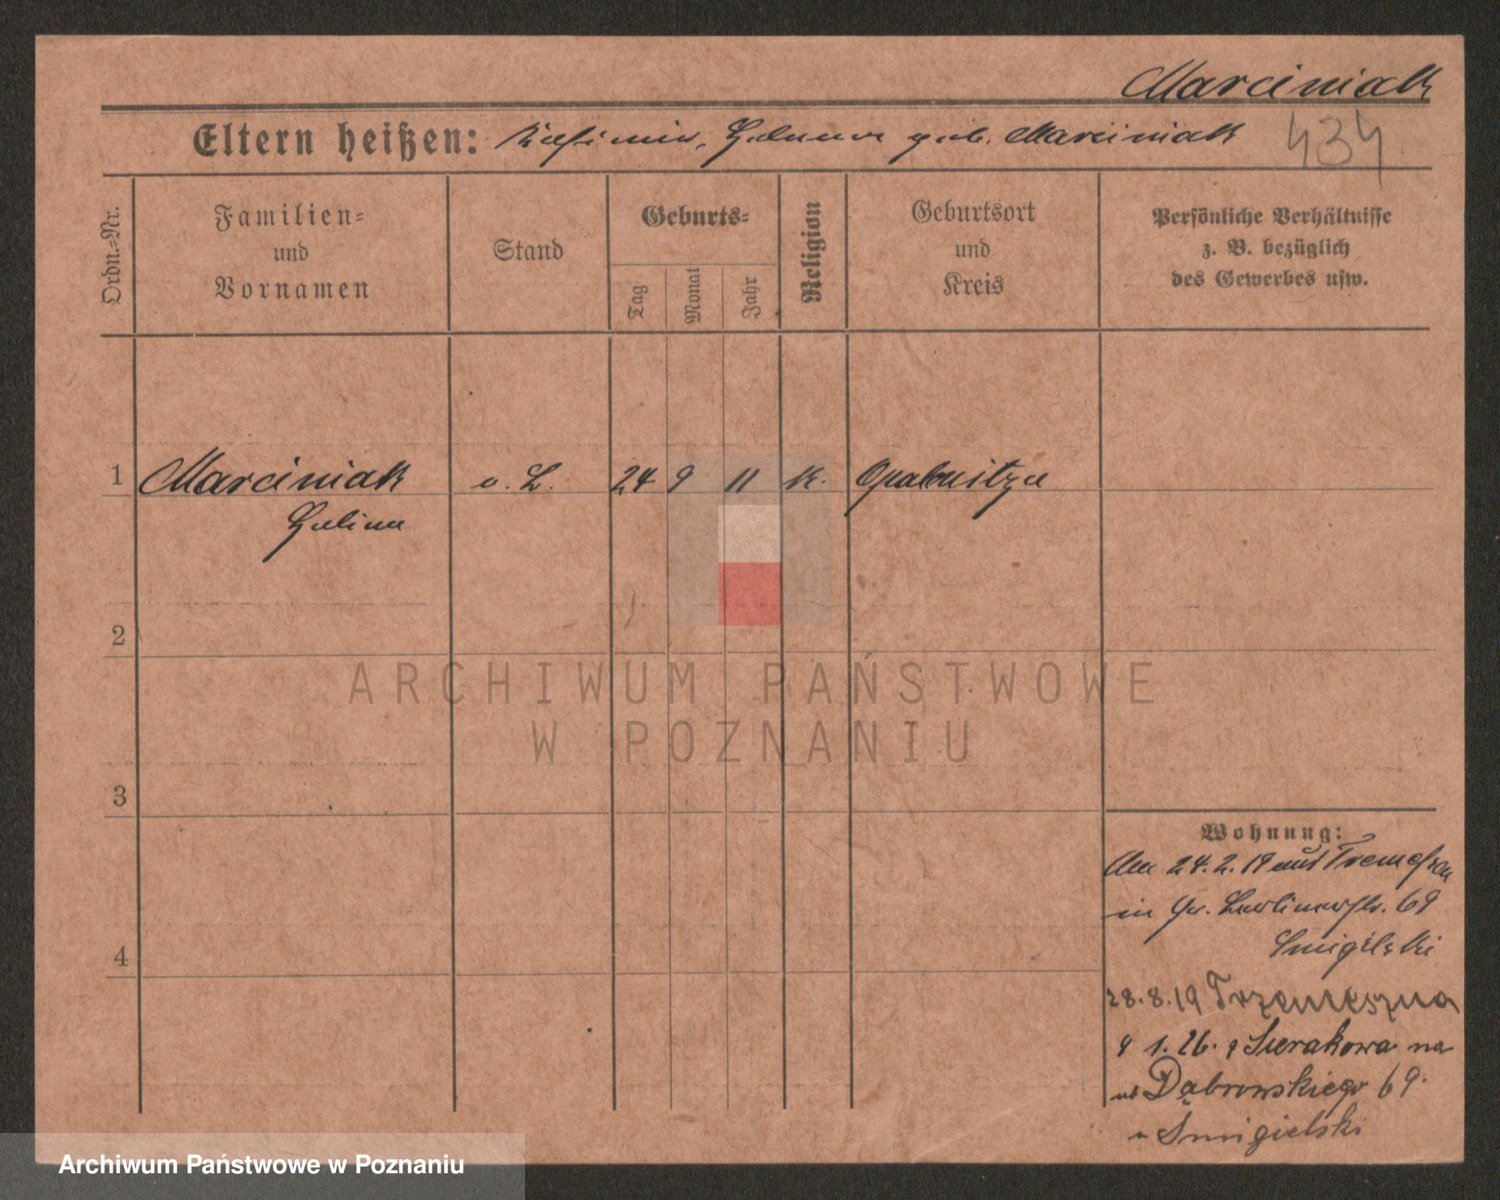 Marciniak
Eltern heißen: Kasimir, Helena geb. Marciniak
434
Ordn.-Nr.
Familien-
und
Vornamen
Stand
Geburts-
Tag
Monat
Jahr
Religion
Geburtsort
und
Kreis
Persönliche Verhältnisse
z. B. bezüglich
des Gewerbes usw.
1 Marciniak o. B. 24 9 11 k. Opalenitza
Halina
2
3
4
Wohnung:
Am 24.2.19 aus Tremessen
in Gr. Berlinerstr. 69
Smigielski
28.8.19 Trzemeszna
1.26. Sierakowa na
ul Dąbrowskiego 69.
u Smigielski
ARCHIWUM PAŃSTWOWE
W POZNANIU
Archiwum Państwowe w Poznaniu